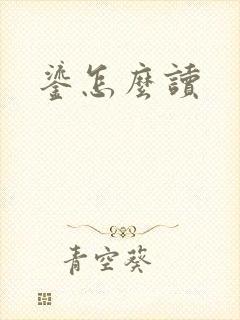 鎏怎麼讀
青空葵